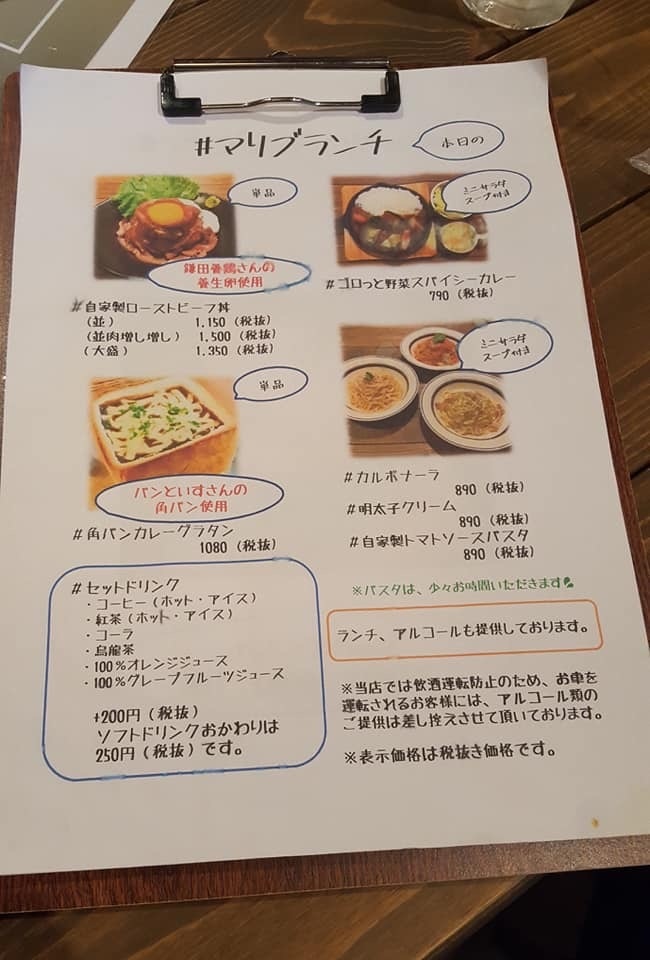 #マリブランチ
本日の
単品
鎌田養鶏さんの
養生卵使用
#自家製ローストビーフ丼
（並） 1.150（税抜）
（並肉増し増し） 1,500（税抜）
（大盛） 1.350（税抜）
ミニサラダ
スープ付き
#ゴロっと野菜スパイシーカレー
790（税抜）
単品
パンといすさんの
角パン使用
#角パンカレーグラタン
1080（税抜）
ミニサラダ
スープ付き
#カルボナーラ
890（税抜）
#明太子クリーム
890（税抜）
#自家製トマトソースパスタ
890（税抜）
※パスタは、少々お時間いただきます
#セットドリンク
・コーヒー（ホット・アイス）
・紅茶（ホット・アイス）
・コーラ
・烏龍茶
・100％オレンジジュース
・100％グレープフルーツジュース
+200円（税抜）
ソフトドリンクおかわりは
250円（税抜）です。
ランチ、アルコールも提供しております。
※当店では飲酒運転防止のため、お車を
運転されるお客様には、アルコール類の
ご提供は差し控えさせて頂いております。
※表示価格は税抜き価格です。